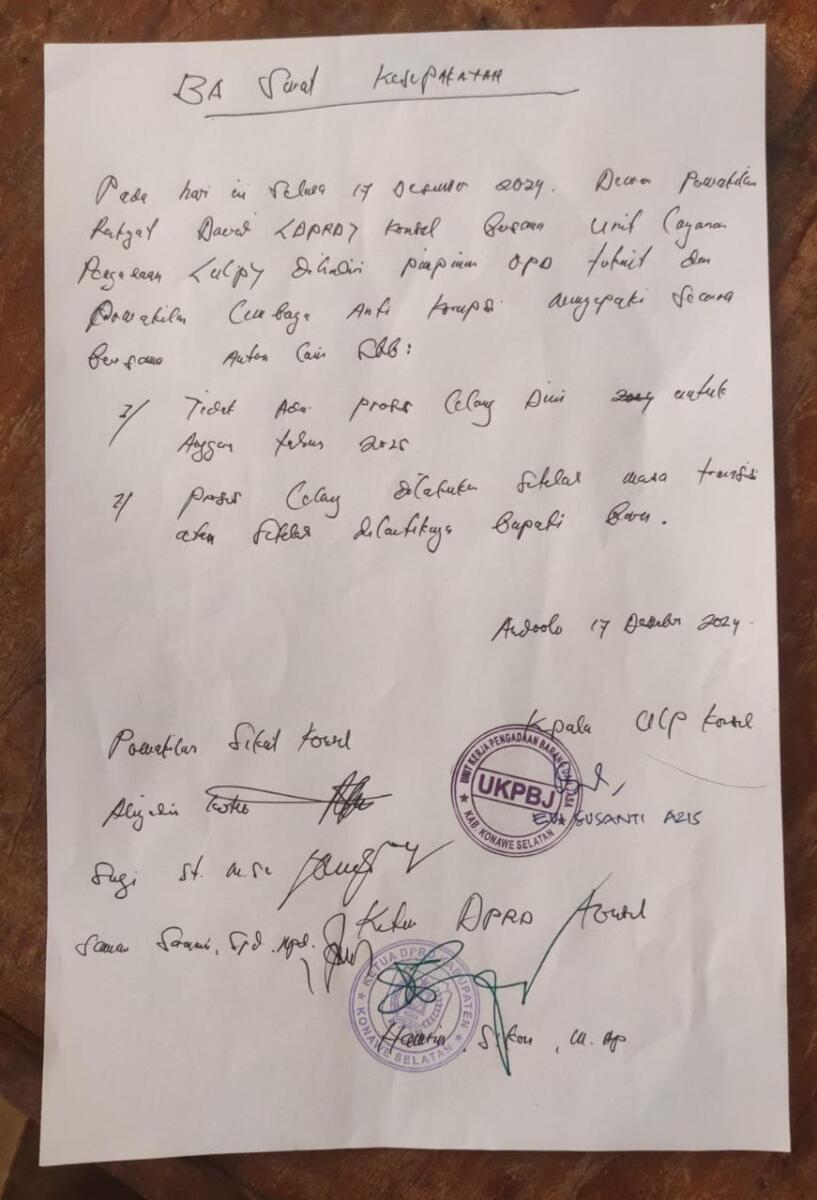 BA Surat KESEPAKATAN
Pada hari ini Selasa 17 Desember 2024. Dewan Perwakilan
Rakyat Daerah <DPRD> Konsel Bersama Unit Layanan
Pengadaan <ULP> dihadiri pimpinan OPD terkait dan
Perwakilan Lembaga Anti Korupsi menyepakati secara
Bersama Antara Lain Sbb:
1/ Tidak Ada proses Lelang Dini untuk
Anggaran tahun 2025
2/ proses Lelang dilakukan setelah masa transisi
atau setelah dilantiknya Bupati Baru.
Andoolo 17 Desember 2024.
Perwakilan Sikat Konsel
Kepala ULP Konsel
UNIT KERJA PENGADAAN BARANG DAN JASA
UKPBJ
KAB. KONAWE SELATAN
EVI SUSANTI AZIS
Sugi ST. M.Sc
Ketua DPRD Konsel
S.Pd. M.Pd.
KETUA DPRD KABUPATEN
KONAWE SELATAN
M. AP